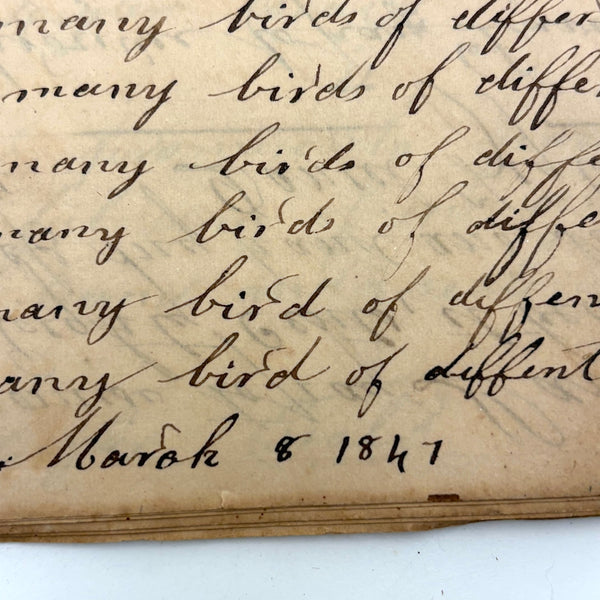 many birds of differ
many birds of differ
many birds of diffe
many birds of diffe
many bird of differn
many bird of diffent
March 8 1847